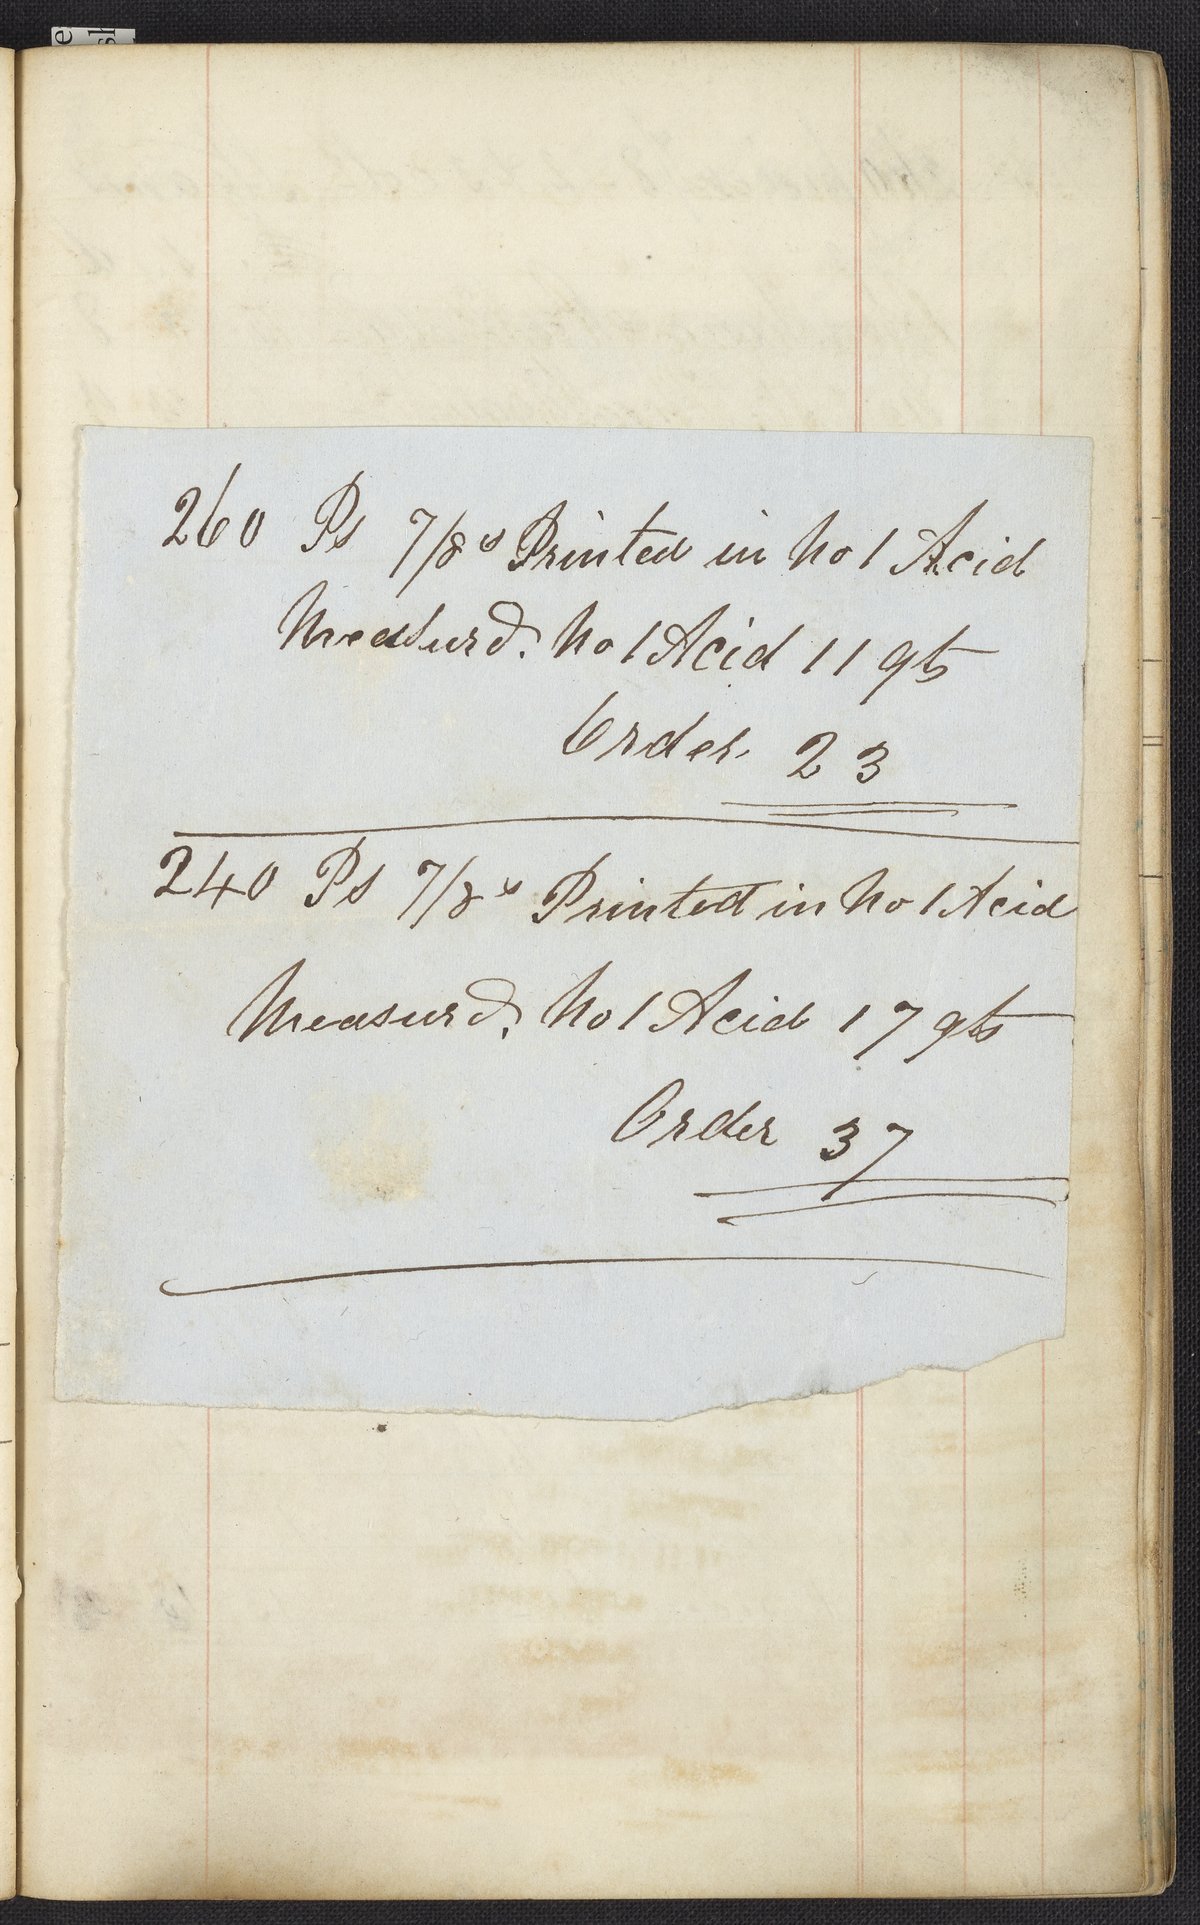 260 Ps 7/8s Printed in No 1 Acid
Measurd. No 1 Acid 11 qts
Order 23
240 Ps 7/8s Printed in No 1 Acid
Measurd. No 1 Acid 17 qts
Order 37